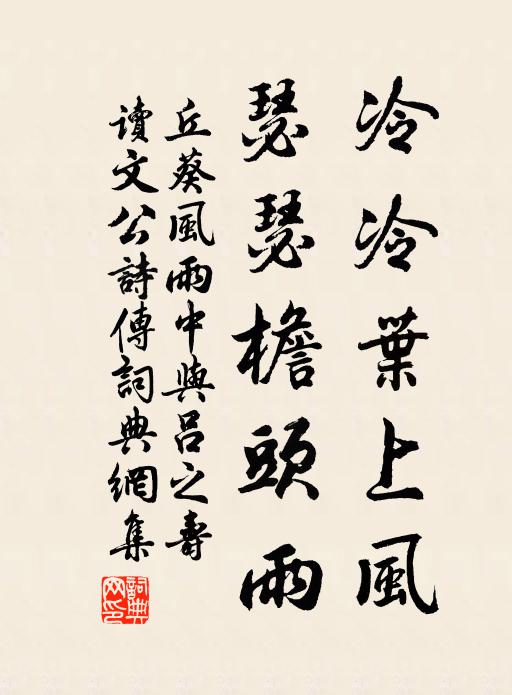 冷冷葉上風
瑟瑟檐頭雨
丘葵風雨中與呂之壽
讀文公詩傳詞典網集
詞典網印